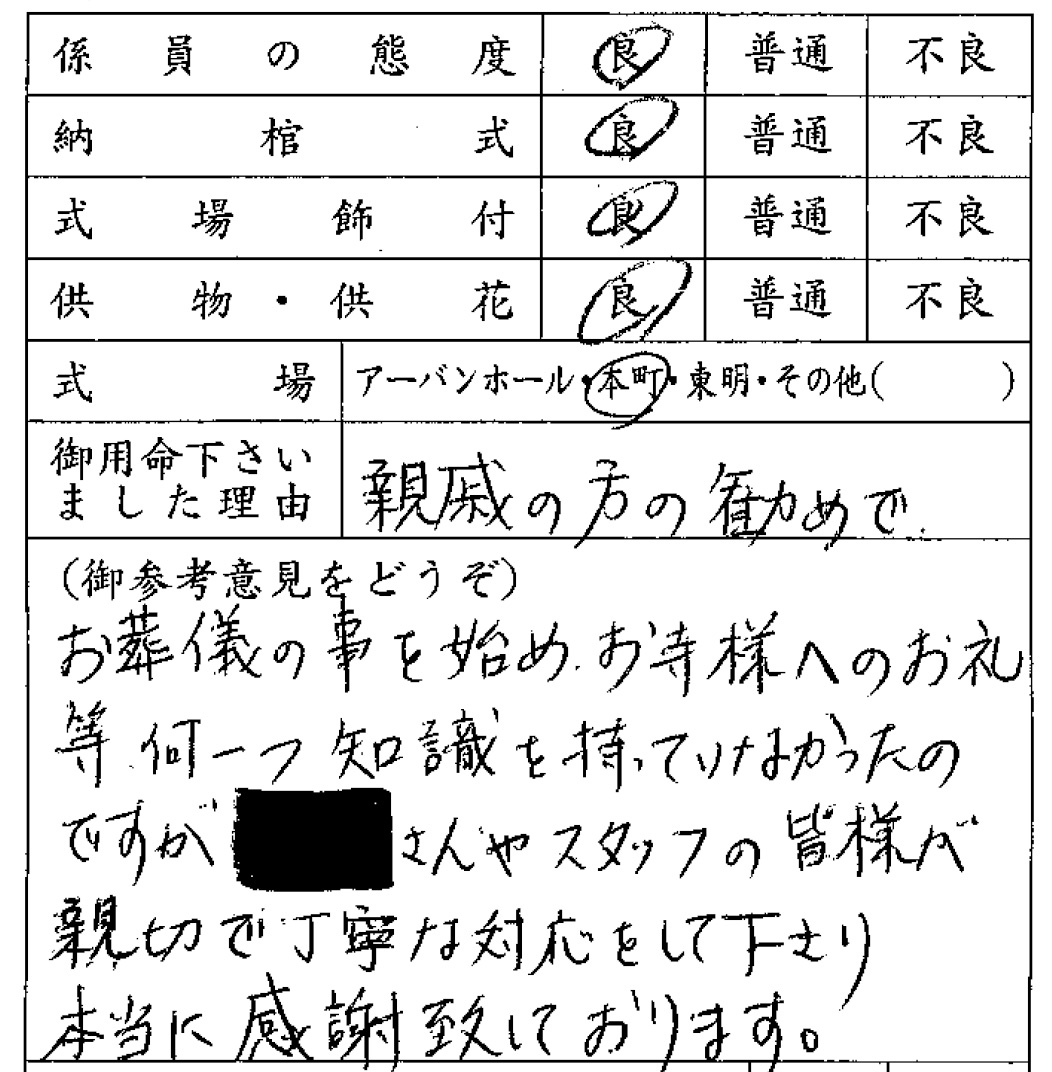 係員の態度 良 普通 不良
納棺式 良 普通 不良
式場飾付 良 普通 不良
供物・供花 良 普通 不良
式場 アーバンホール・本町・東明・その他( )
御用命下さい
ました理由
親戚の方の勧めで.
(御参考意見をどうぞ)
お葬儀の事を始め.お寺様へのお礼
等.何一つ知識を持っていなかったの
ですが
さんやスタッフの皆様が
親切で丁寧な対応をして下さり
本当に感謝致しております。